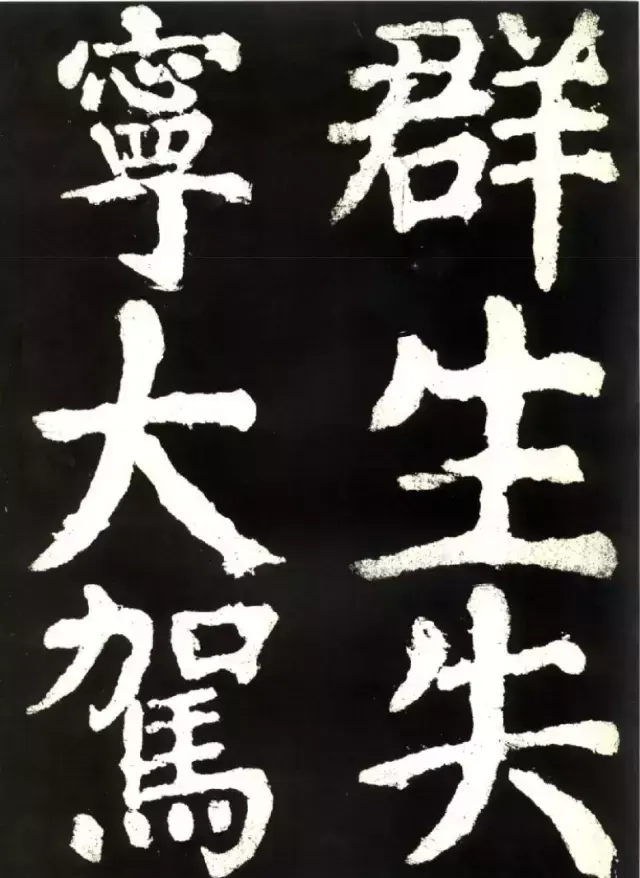 群生失
寧大駕